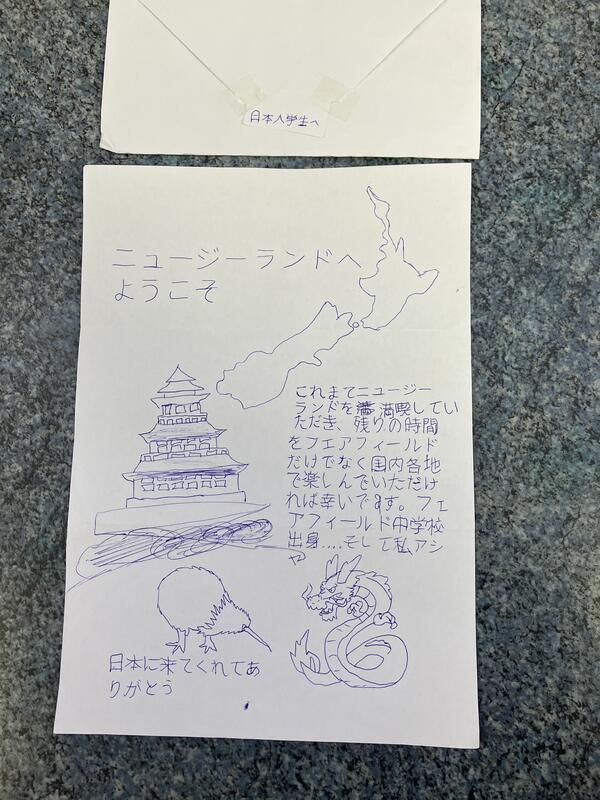 日本人学生へ
ニュージーランドへ
ようこそ
これまでニュージー
ランドを満満喫してい
ただき、残りの時間
をフエアフィールド
だけでなく国内各地
で楽しんでいただけ
れば幸いです。フェ
アフィールド中学校
出身....そして私アシ
ャ
日本に来てくれてあ
りがとう